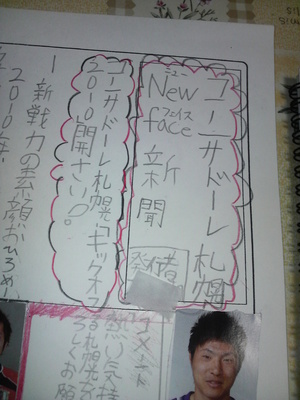 コンサドーレ札幌
ニュー フェイス
New face 新聞
発行者
コンサドーレ札幌キックオフ
2010開さい!!
ー新戦力の素顔おひろめ
2010年、
コメント
熱い気持
る札幌
ろしくお願